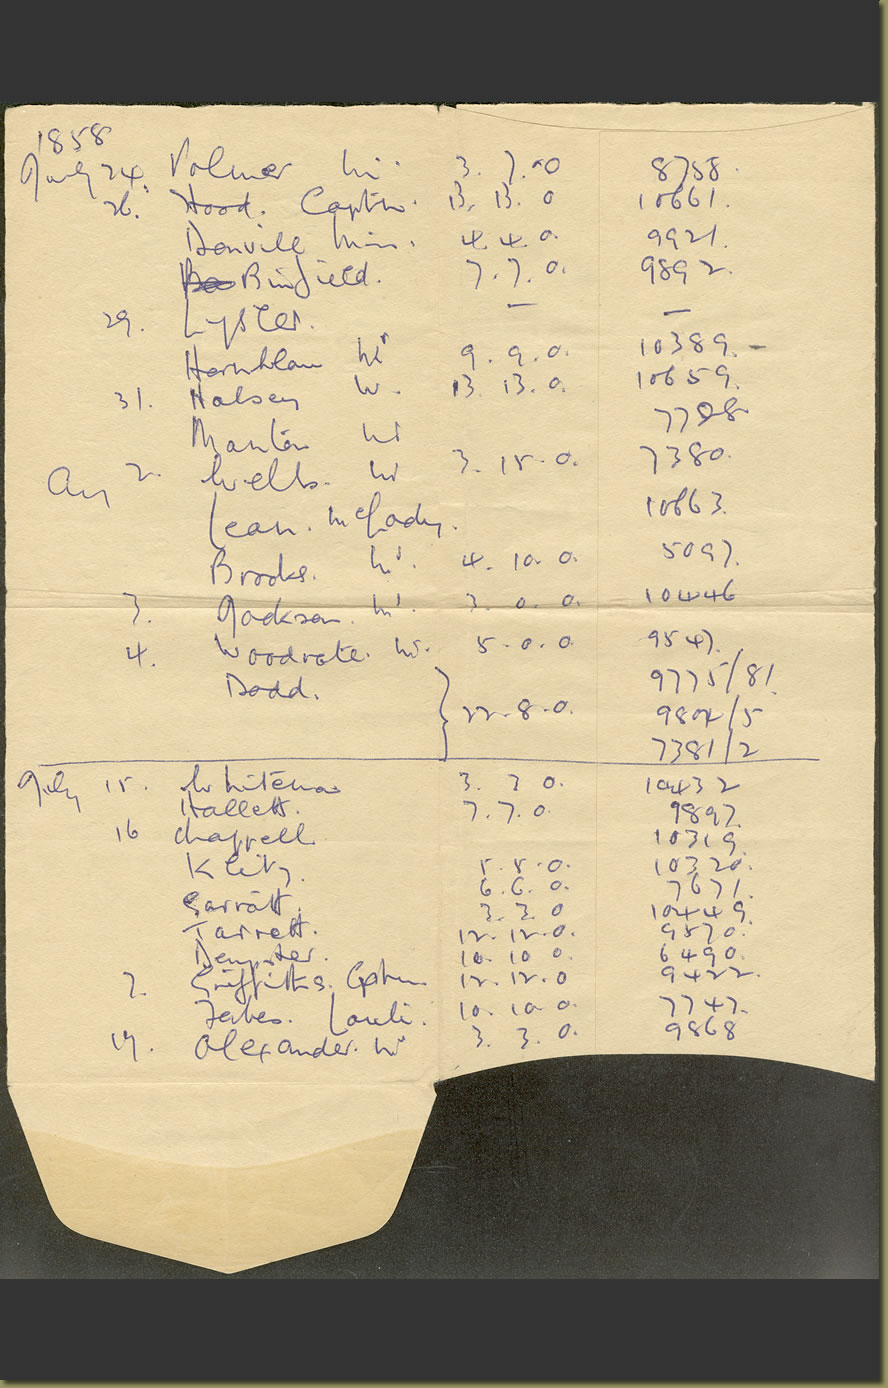 1858
July 24. Volmer Mr. 3. 7. 0 8758.
26. Hood. Captn. 13. 13. 0 10661.
Denville Miss. 4. 4. 0. 9921.
Binfield. 7. 7. 0. 9892.
29. Lyster. — —
Hornblow Mr 9. 9. 0. 10389. -
31. Halsey W. 13. 13. 0. 10659.
Manton Mr
Aug 2. Wells. Mr 3. 15. 0. 7380.
Lean. 10663.
Brooks. Mr. 4. 10. 0. 5097.
3. Jackson. Mr. 3. 0. 0. 10446
4. Woodrote. Mr. 5. 0. 0 9547.
Dodd. 9775/81.
22. 8. 0. 9804/5
7381/2
July 15. 3. 3 0. 10432
Hallett. 7. 7. 0. 9897.
16 Chappell. 10319.
5. 5. 0. 10320.
6. 6. 0. 7671.
Garratt. 3. 3. 0 10449.
Tarrett. 12. 12. 0. 9570.
Dempster. 10. 10. 0 6490.
Griffiths. Captn 12. 12. 0 9422.
10. 10. 0. 7747.
Alexander. Mr 3. 3. 0. 9868